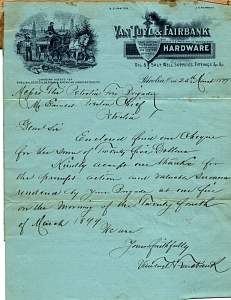 VAN TUYL & FAIRBANK
HARDWARE
OIL & SALT WELL SUPPLIES, FITTINGS &c. &c.
Petrolia Ont 1899
Petrolia Fire Brigade
Chief
Petrolia
Dear Sir
Enclosed find our Cheque
for the sum of Twenty five Dollars
Kindly accept our thanks for
the prompt action and valuable Service
rendered by your Brigade at our fire
on the Morning of the Twenty fourth
of March 1899
We are
Yours faithfully
VanTuyl & Fairbank